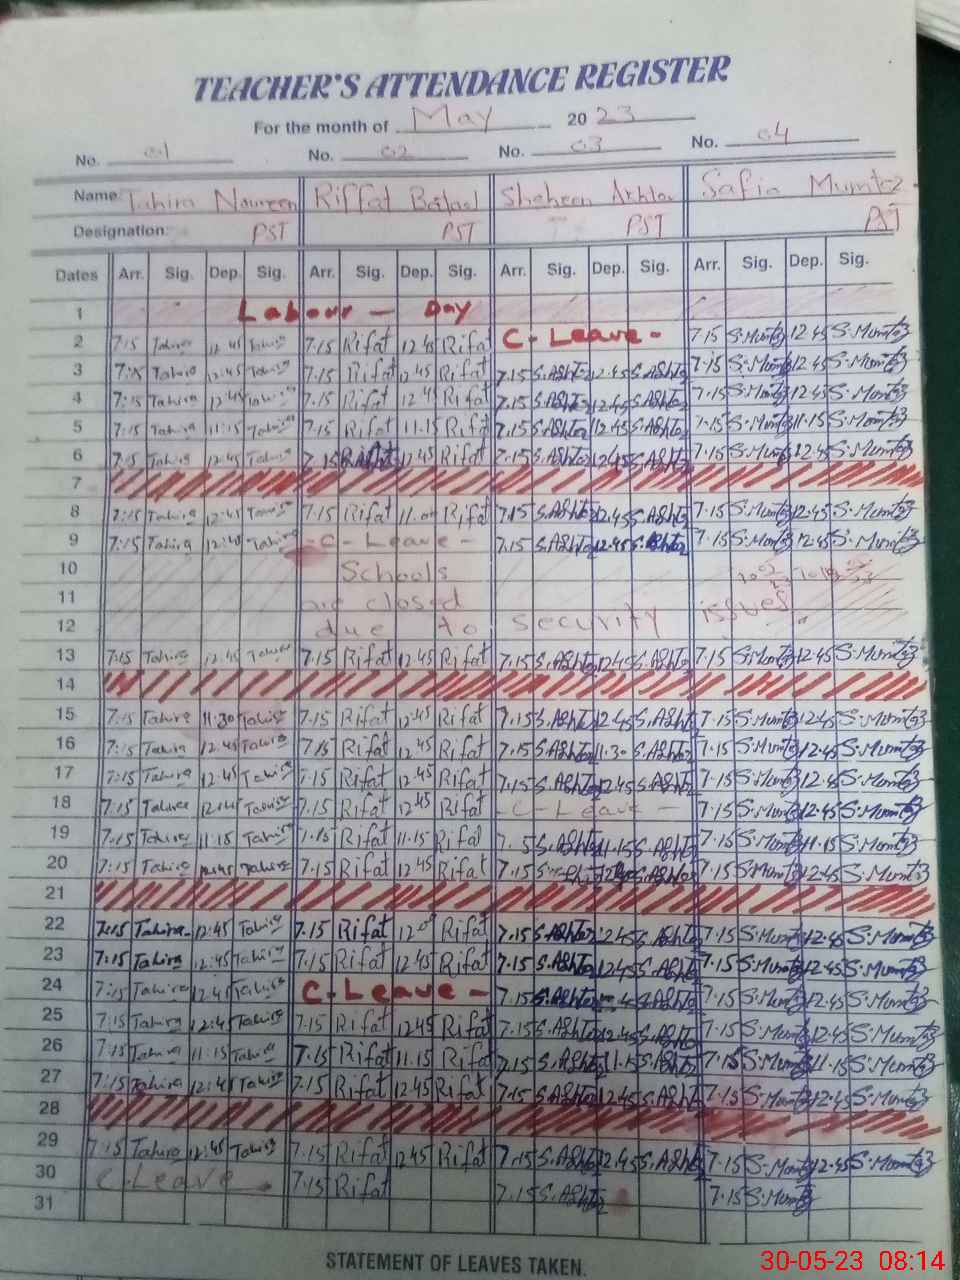 TEACHER'S ATTENDANCE REGISTER
For the month of May 2023
No. 01 No. 02 No. 03 No. 04
Name: Tahira Naureen Riffat Shaheen Akhtar Safia Mumtaz
Designation: PST PST PST PST
Dates Arr. Sig. Dep. Sig. Arr. Sig. Dep. Sig. Arr. Sig. Dep. Sig. Arr. Sig. Dep. Sig.
1 Labour - Day
2 7:15 Tahira 12:45 Tahira 7.15 Rifat 12 45 Rifat C- Leave - 7.15 S.Mumtaz 12.45 S.Mumtaz
3 7:15 Tahira 12:45 Tahira 7.15 Rifat 12 45 Rifat 7.15 S.Akhtar 12.45 S.Akhtar 7.15 S.Mumtaz 12.45 S.Mumtaz
4 7:15 Tahira 12:45 Tahira 7.15 Rifat 12 45 Rifat 7.15 S.Akhtar 12.45 S.Akhtar 7.15 S.Mumtaz 12.45 S.Mumtaz
5 7:15 Tahira 11:15 Tahira 7.15 Rifat 11.15 Rifat 7.15 S.Akhtar 12.45 S.Akhtar 7.15 S.Mumtaz 11.15 S.Mumtaz
6 7:15 Tahira 12:45 Tahira 7.15 Rifat 12.45 Rifat 7.15 S.Akhtar 12.45 S.Akhtar 7.15 S.Mumtaz 12.45 S.Mumtaz
7
8 7:15 Tahira 12:45 Tahira 7.15 Rifat Rifat 7.15 S.Akhtar 12.45 S.Akhtar 7.15 S.Mumtaz 12.45 S.Mumtaz
9 7:15 Tahira Tahira - C - Leave - 7.15 S.Akhtar 12.45 S.Akhtar 7.15 S.Mumtaz 12.45 S.Mumtaz
10 Schools
11 are closed issues
12 due to security
13 7:15 Tahira 12:45 Tahira 7.15 Rifat 12 45 Rifat 7.15 S.Akhtar 12.45 S.Akhtar 7.15 S.Mumtaz 12.45 S.Mumtaz
14
15 7:15 Tahira 11:30 Tahira 7.15 Rifat 12.45 Rifat 7.15 S.Akhtar 12.45 S.Akhtar 7.15 S.Mumtaz 12.45 S.Mumtaz
16 7:15 Tahira 12:45 Tahira 7.15 Rifat 12.45 Rifat 7.15 S.Akhtar 11.30 S.Akhtar 7.15 S.Mumtaz 12.45 S.Mumtaz
17 7:15 Tahira 12:45 Tahira 7.15 Rifat 12.45 Rifat 7.15 S.Akhtar 12.45 S.Akhtar 7.15 S.Mumtaz 12.45 S.Mumtaz
18 7:15 Tahira Tahira 7.15 Rifat 12 45 Rifat - C - Leave - 7.15 S.Mumtaz 12.45 S.Mumtaz
19 7:15 Tahira 11:15 Tahira 7.15 Rifat 11.15 Rifat S.Akhtar 11.15 S.Akhtar 7.15 S.Mumtaz 11.15 S.Mumtaz
20 7:15 Tahira 12:45 Tahira 7.15 Rifat 12 45 Rifat 7.15 S.Akhtar 7.15 S.Mumtaz 12.45 S.Mumtaz
21
22 7:15 Tahira 12:45 Tahira 7.15 Rifat Rifat 7.15 S.Akhtar 12.45 S.Akhtar 7.15 S.Mumtaz 12.45 S.Mumtaz
23 7:15 Tahira 12:45 Tahira 7.15 Rifat 12 45 Rifat 7.15 S.Akhtar 12.45 S.Akhtar 7.15 S.Mumtaz 12.45 S.Mumtaz
24 7:15 Tahira 12:45 Tahira C- Leave - 7.15 S.Akhtar S.Akhtar 7.15 S.Mumtaz 12.45 S.Mumtaz
25 7:15 Tahira 12:45 Tahira 7.15 Rifat 12 45 Rifat 7.15 S.Akhtar 12.45 S.Akhtar 7.15 S.Mumtaz 12.45 S.Mumtaz
26 7:15 Tahira 11:15 Tahira 7.15 Rifat 11.15 Rifat 7.15 S.Akhtar 11.15 S.Akhtar 7.15 S.Mumtaz 11.15 S.Mumtaz
27 7:15 Tahira 12:45 Tahira 7.15 Rifat 12.45 Rifat 7.15 S.Akhtar 12.45 S.Akhtar 7.15 S.Mumtaz 12.45 S.Mumtaz
28
29 7:15 Tahira 12:45 Tahira 7.15 Rifat 12 45 Rifat 7.15 S.Akhtar 12.45 S.Akhtar 7.15 S.Mumtaz 12.45 S.Mumtaz
30 C. Leave 7.15 Rifat 7.15 S.Akhtar 7.15 S.Mumtaz
31
STATEMENT OF LEAVES TAKEN.
30-05-23 08:14